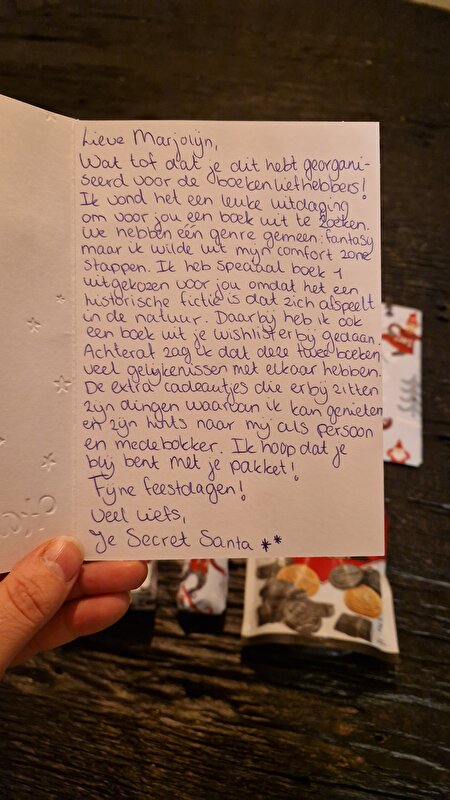 Lieve Marjolijn,
Wat tof dat je dit hebt georgani-
seerd voor de boekenliefhebbers!
Ik vond het een leuke uitdaging
om voor jou een boek uit te zoeken.
We hebben één genre gemeen: fantasy
maar ik wilde uit mijn comfort zone
stappen. Ik heb speciaal boek 1
uitgekozen voor jou omdat het een
historische fictie is dat zich afspeelt
in de natuur. Daarbij heb ik ook
een boek uit je wishlist erbij gedaan.
Achteraf zag ik dat deze twee boeken
veel gelijkenissen met elkaar hebben.
De extra cadeautjes die erbij zitten
zijn dingen waarvan ik kan genieten
en zijn hints naar mij als persoon
en medebokker. Ik hoop dat je
blij bent met je pakket!
Fijne feestdagen!
Veel liefs,
Je Secret Santa **